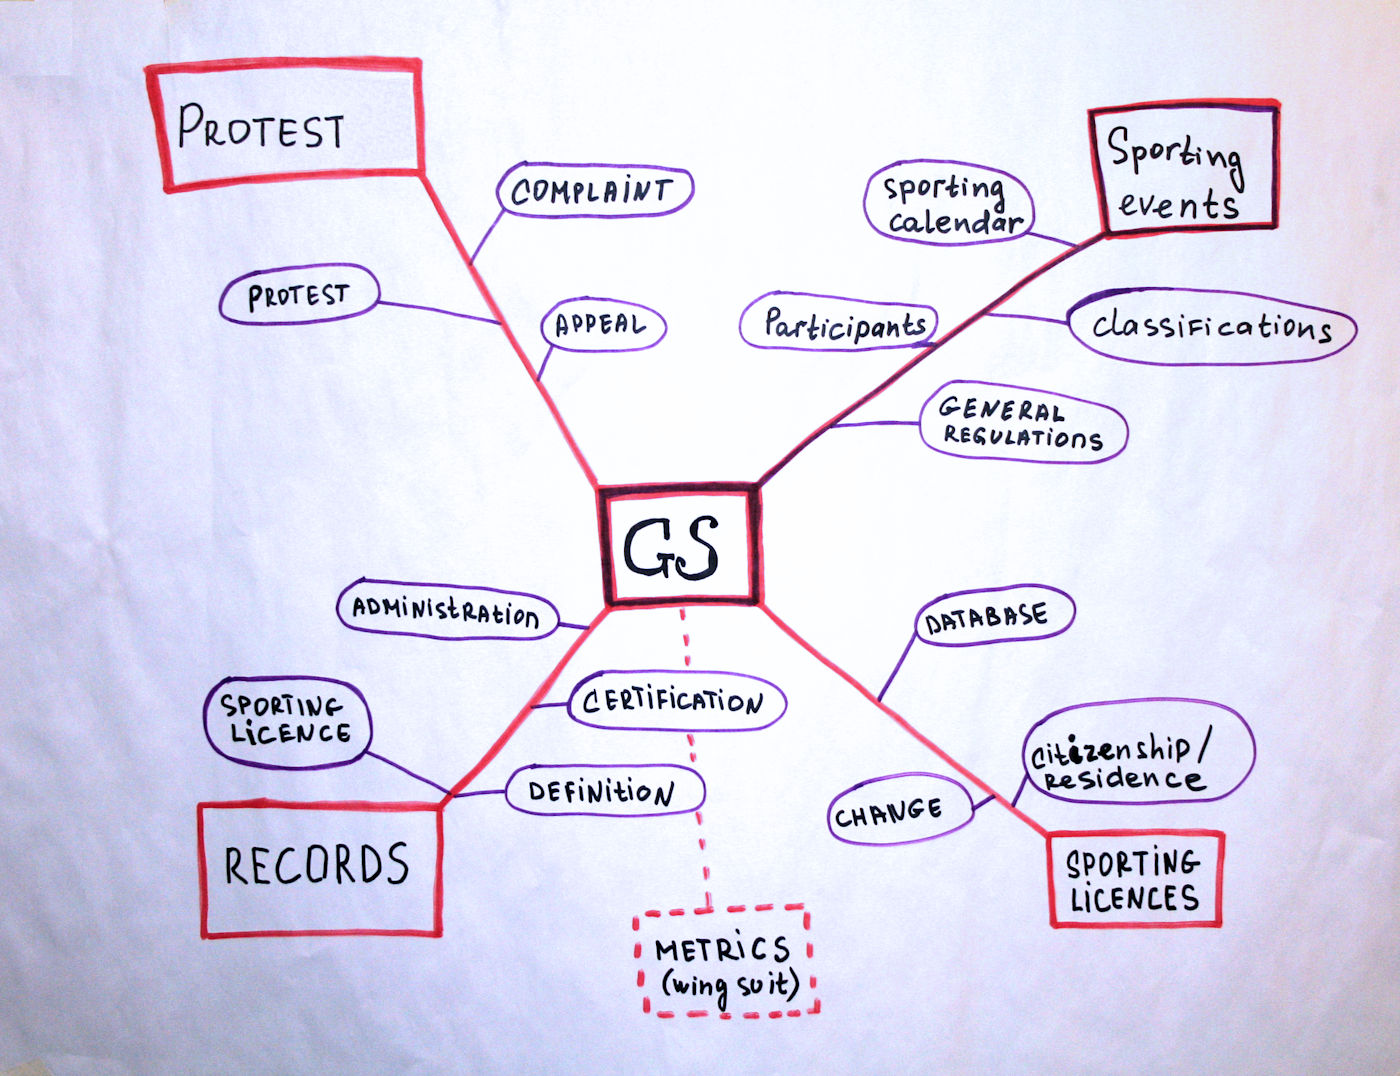 PROTEST
COMPLAINT
PROTEST
APPEAL
Sporting
events
sporting
calendar
Participants
classifications
GENERAL
REGULATIONS
GS
ADMINISTRATION
SPORTING
LICENCE
CERTIFICATION
DEFINITION
RECORDS
DATABASE
citizenship/
residence
CHANGE
SPORTING
LICENCES
METRICS
(wing suit)